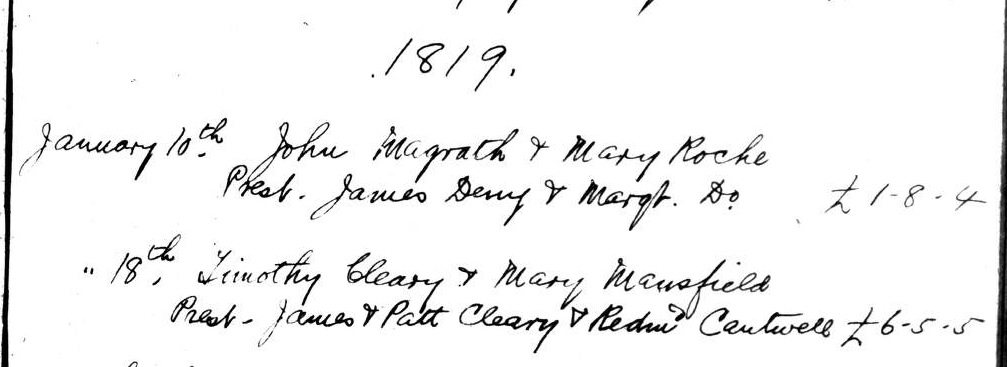 1819.
January 10th. John Magrath & Mary Roche
Prest. James Deny & Margt. Do. £1-8-4
" 18th, Timothy Cleary & Mary Mansfield
Prest. James & Patt Cleary & Redmd Cantwell £6-5-5